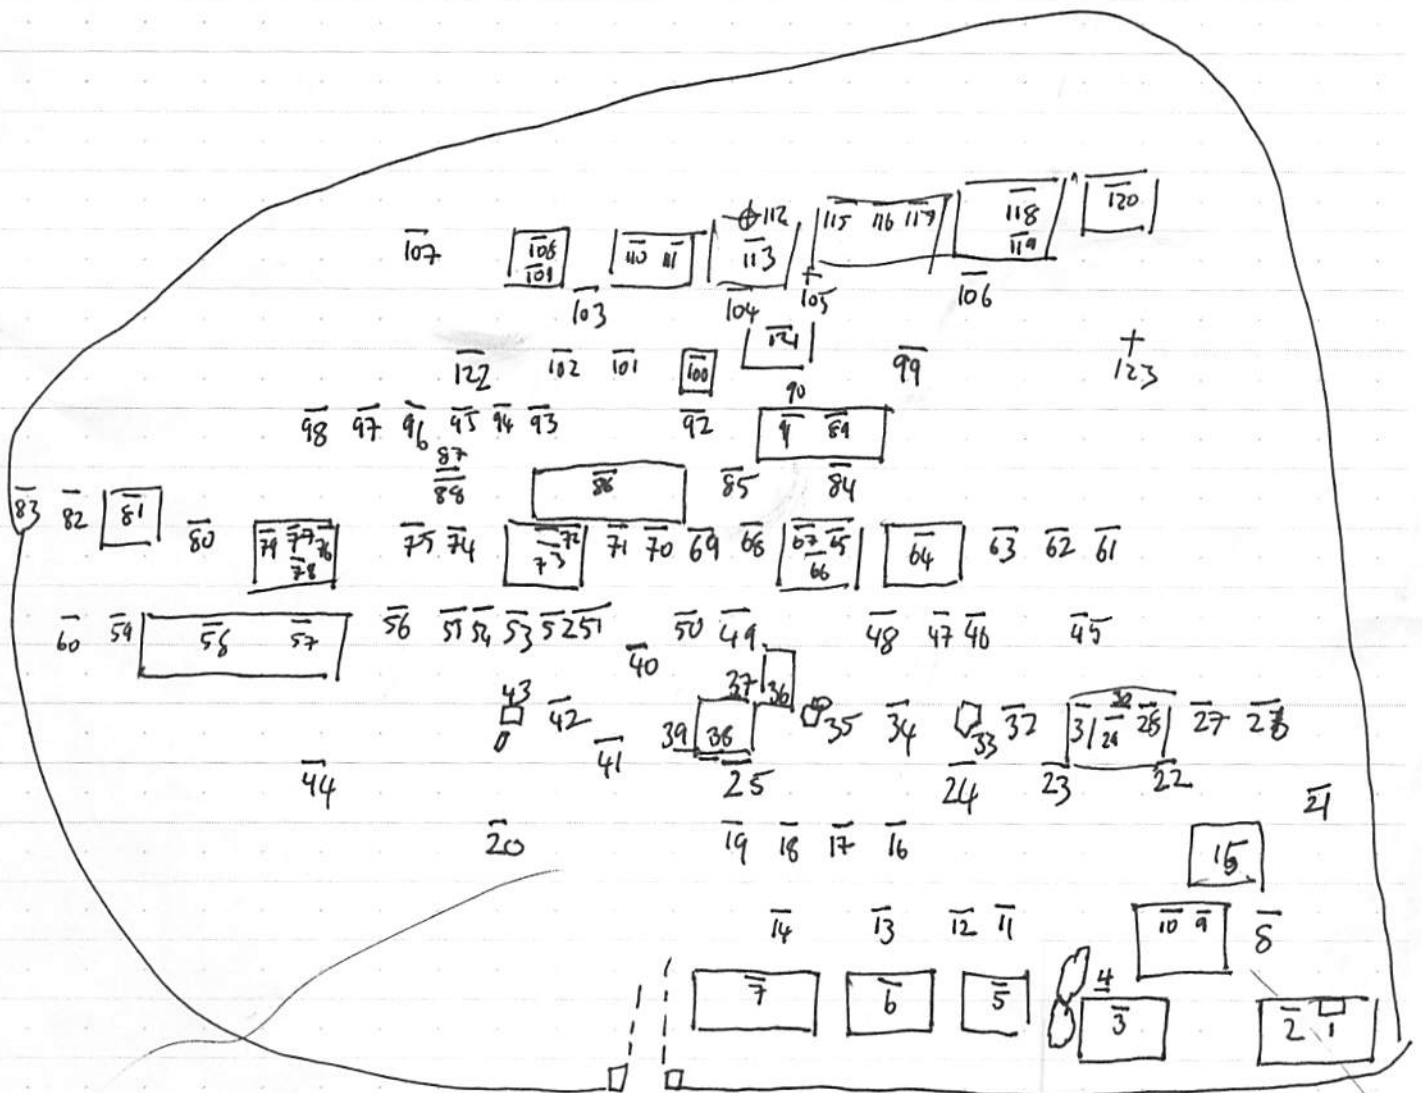 112
115 116 117 118 120
107 108 110 111 113 119
109
103 104 105 106
121
122 102 101 100 99 123
90
98 97 96 95 94 93 92 91 89
87
88 86 85 84
83 82 81
80 79 77 76 75 74 73 72 71 70 69 68 67 65 64 63 62 61
78 66
60 59 58 57 56 55 54 53 52 51 50 49 48 47 46 45
40
43 42 37 36 30
41 39 38 35 34 33 32 31 29 28 27
44 25 24 23 22
21
20 19 18 17 16 15
14 13 12 11 10 9 8
4
7 6 5 3 2 1